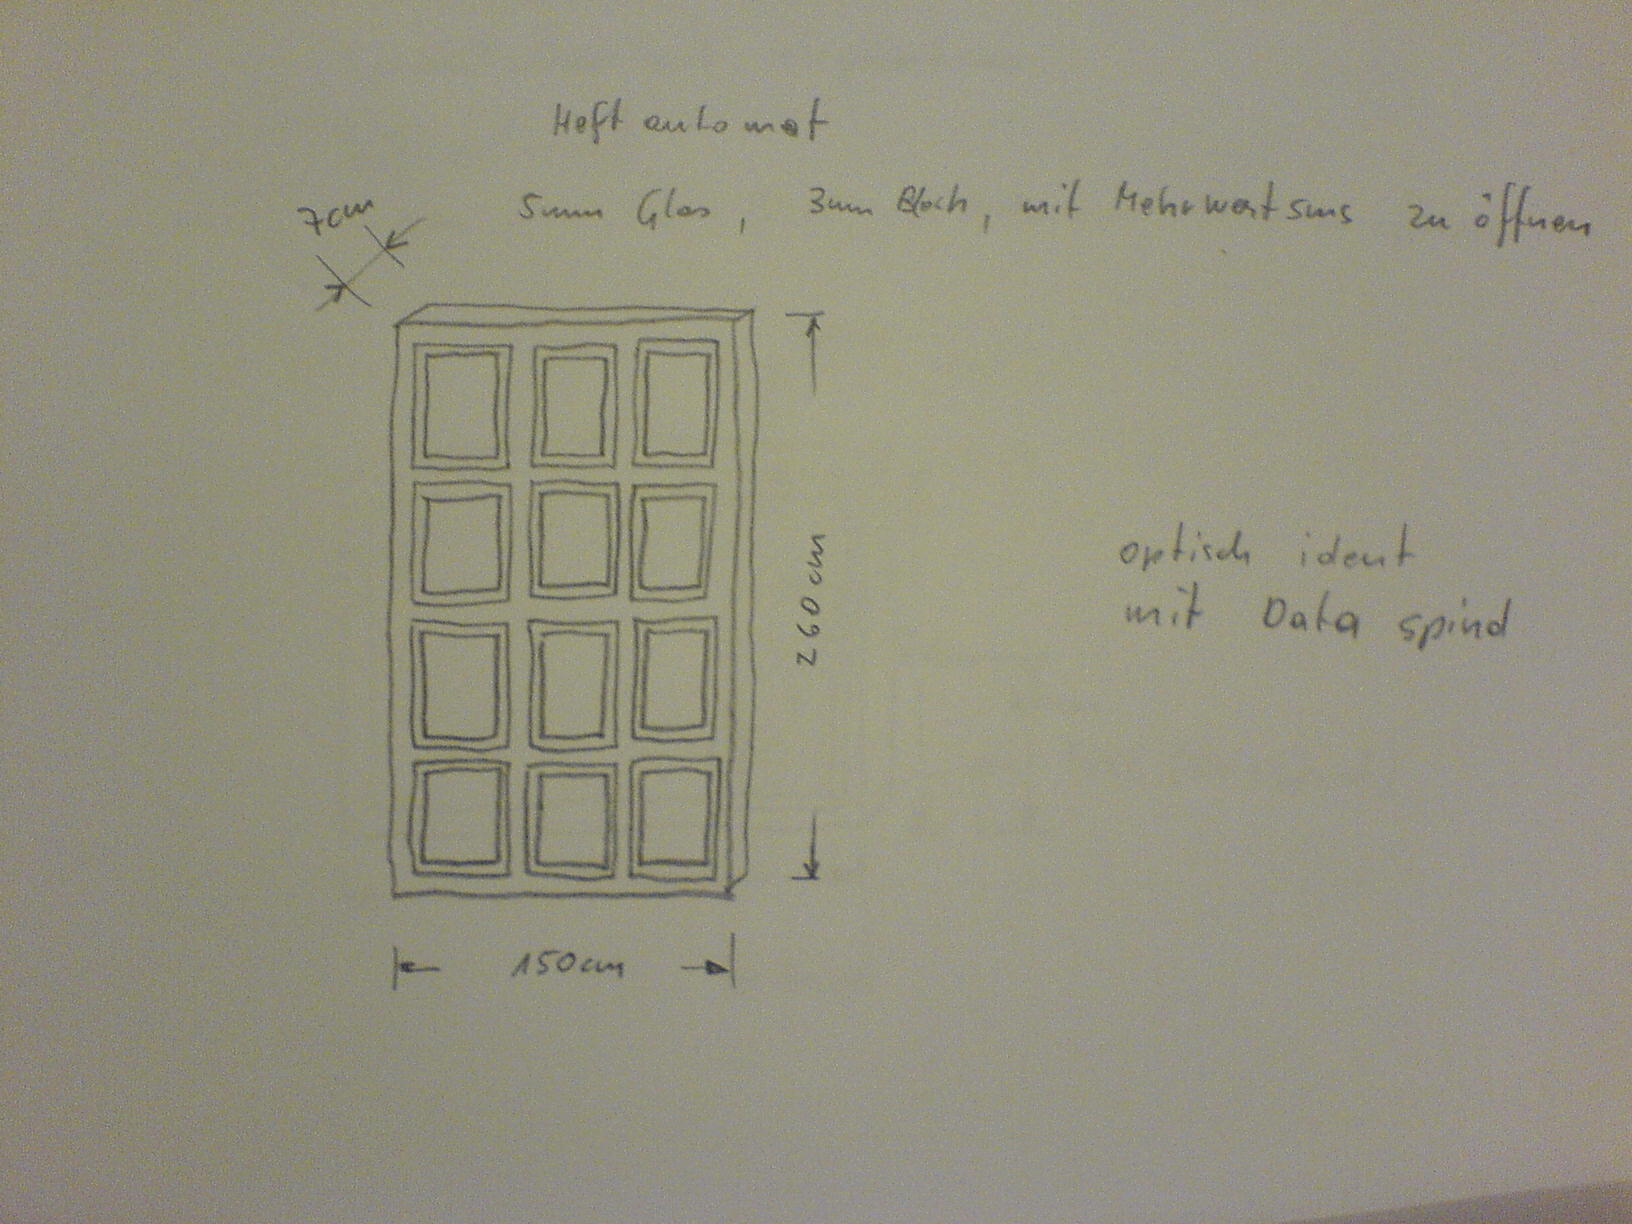 Heftautomat
5mm Glas, 3mm Blech, mit Mehrwertsms zu öffnen
7cm
260cm
optisch ident
mit Data spind
150cm